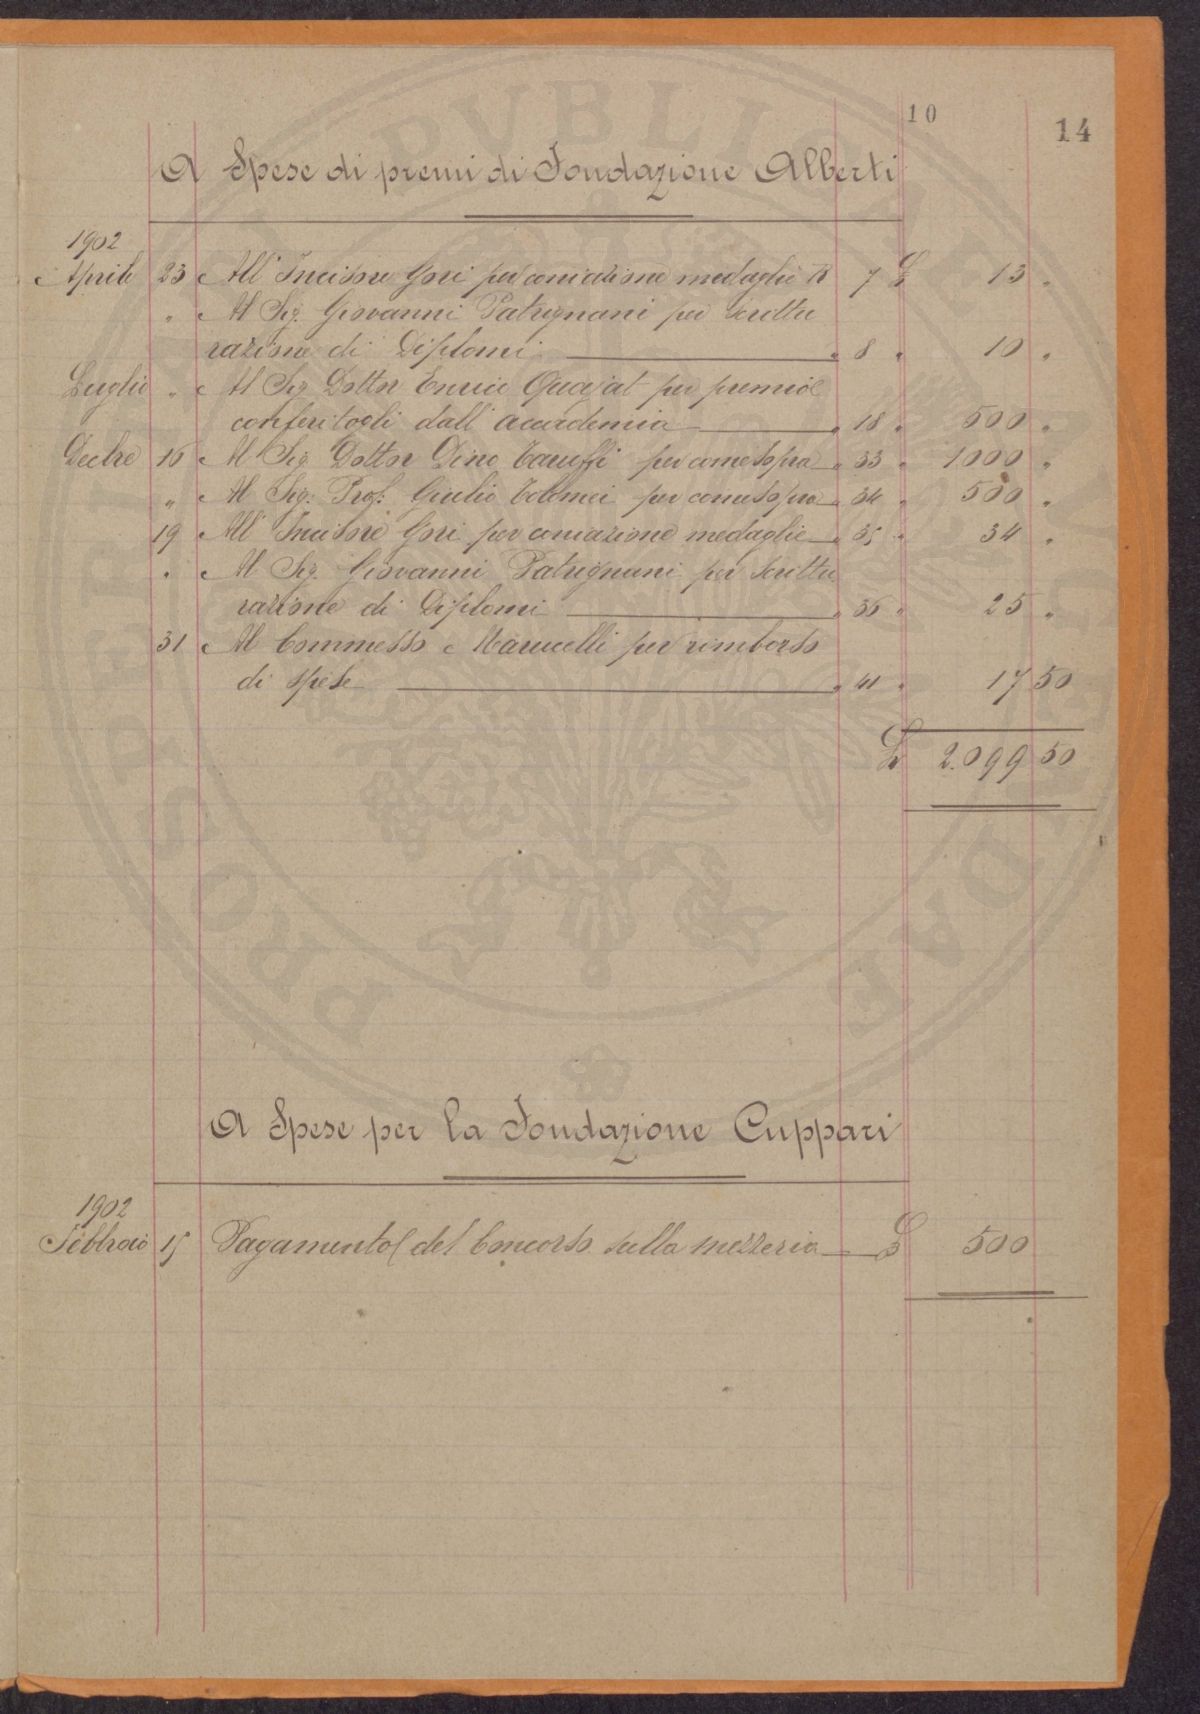 10
14
A Spese di premi di Fondazione Alberti
1902
Aprile 23 All'Incisore Gori per coniazione medaglie N 7 £ 13 "
" Al Sig. Giovanni Patrignani per scrittu
razione di Diplomi " 8 " 10 "
Luglio " Al Sig. Dottor Enrico Quajat per premio
conferitogli dall'accademia " 18 " 500 "
Decbre 16 Al Sig. Dottor Dino Taruffi per come sopra " 33 " 1000 "
" Al Sig: Prof: Giulio Tolomei per come sopra " 34 " 500 "
19 All'Incisore Gori per coniazione medaglie " 35 " 34 "
" Al Sig. Giovanni Patrignani per scrittu
razione di Diplomi " 36 " 25 "
31 Al Commesso Marucelli per rimborso
di spese " 41 " 17 50
£ 2.099 50
A Spese per la Fondazione Cuppari
1902
Febbraio 15 Pagamento del Concorso sulla mezzeria £ 500
PROSPERITATI PUBLICAE AUGENDAE